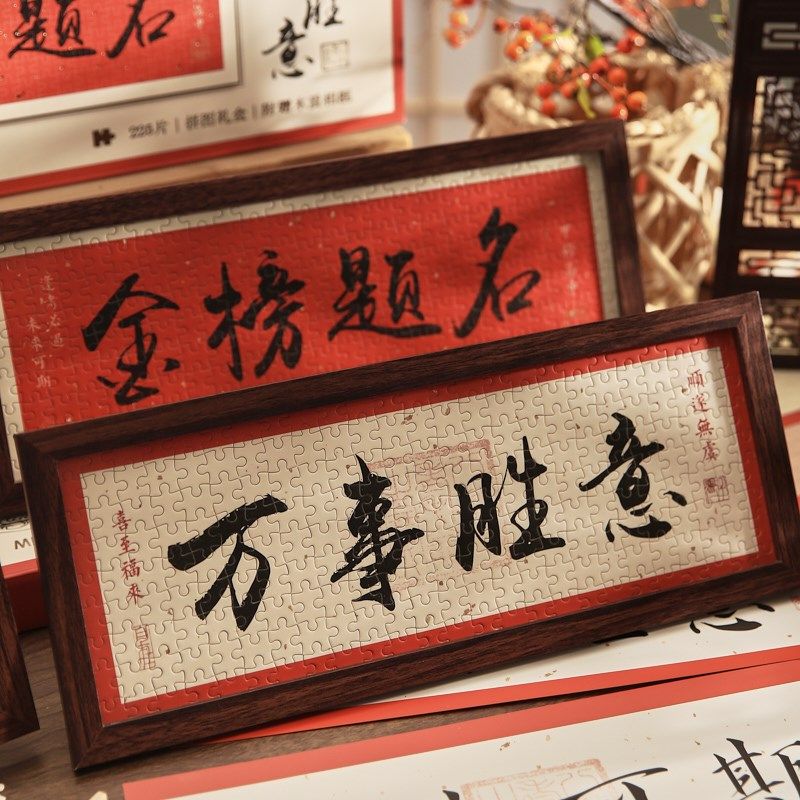 题名
胜
意
225片 | 拼图礼盒 | 附赠木豆相框
金榜题名
逢考必过
未来可期
万事胜意
順遂無虞
喜至福來
意
期